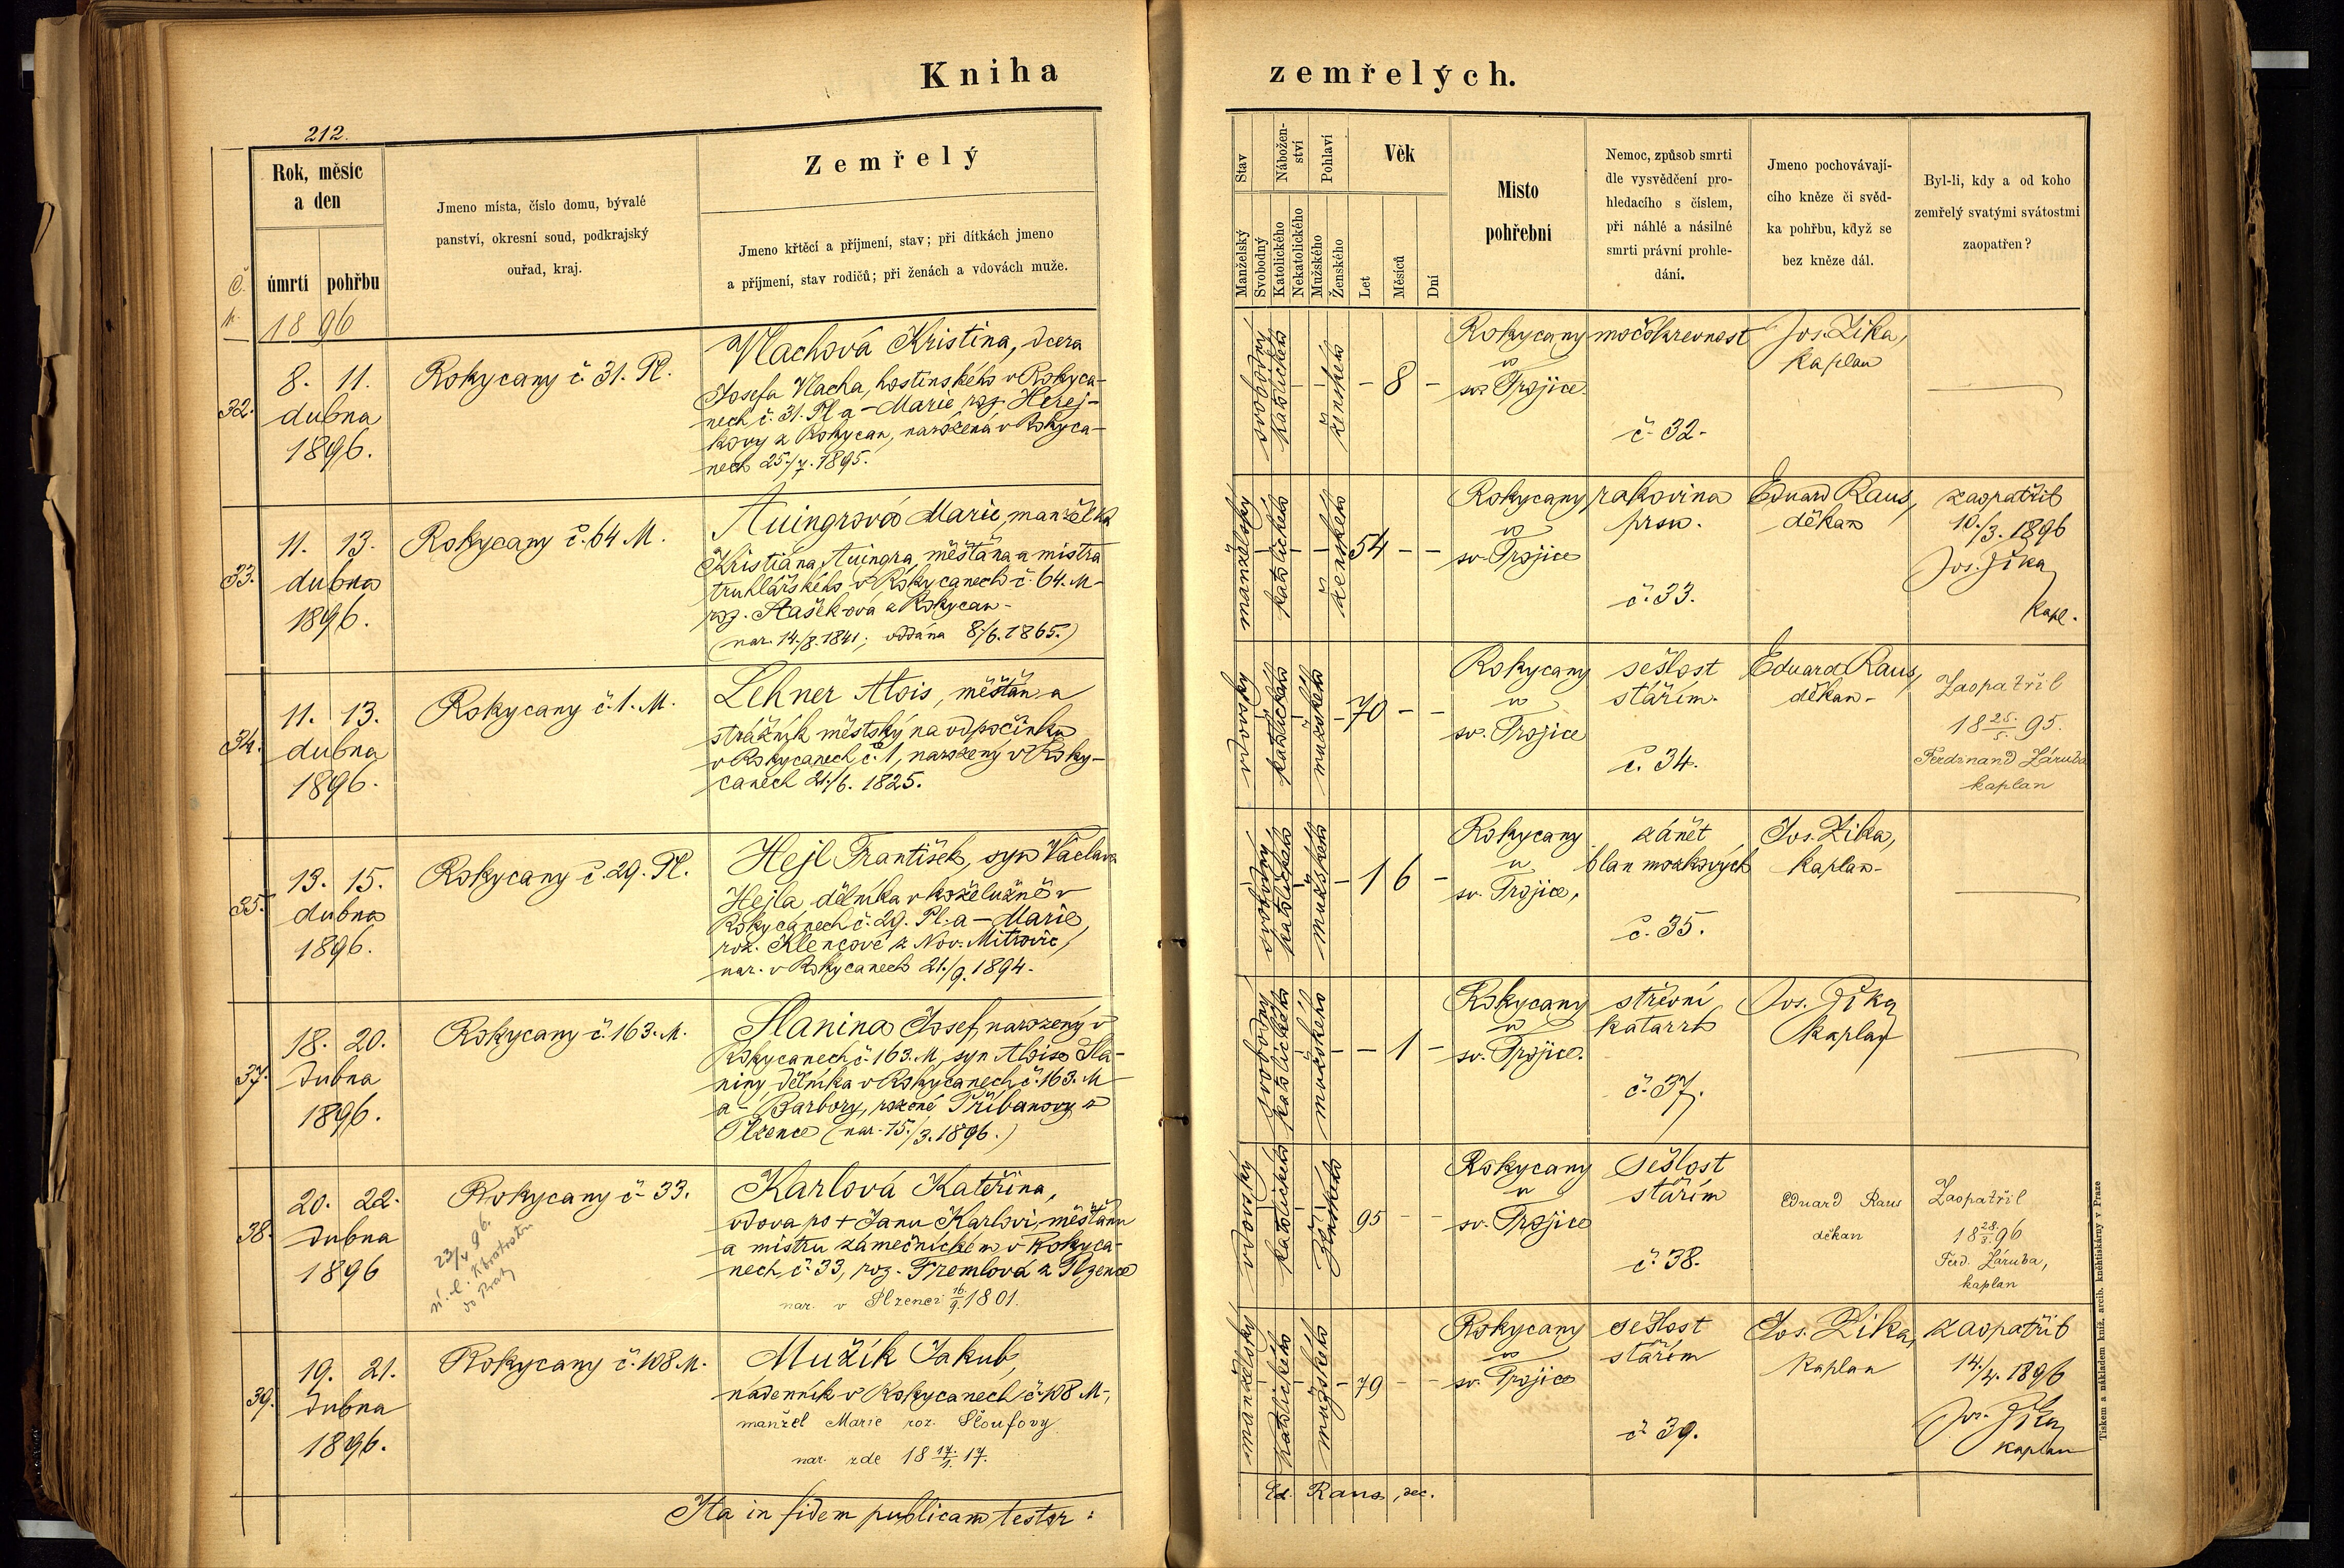 Kniha
zemřelých.
212.
Rok, měsíc
a den
úmrtí
pohřbu
Jmeno místa, číslo domu, bývalé
panství, okresní soud, podkrajský
ouřad, kraj.
Zemřelý
Jmeno křtěcí a příjmení, stav; při dítkách jmeno
a příjmení, stav rodičů; při ženách a vdovách muže.
Stav
Manželský
Svobodný
Nábožen-
ství
Katolického
Nekatolického
Pohlaví
Mužského
Ženského
Věk
Let
Měsíců
Dní
Místo
pohřební
Nemoc, způsob smrti
dle vysvědčení pro-
hledacího s číslem,
při náhlé a násilné
smrti právní prohle-
dání.
Jmeno pochovávají-
cího kněze či svěd-
ka pohřbu, když se
bez kněze dál.
Byl-li, kdy a od koho
zemřelý svatými svátostmi
zaopatřen?
1896
32.
8. 11.
dubna
1896.
Rokycany č. 31. Pl.
Vlachová Kristina, dcera
Josefa Vlacha, hostinského v Rokyca-
nech č. 31. Pl. a - Marie roz. Herej-
kovy z Rokycan, narozená v Rokyca-
nech 25./7. 1895.
svobodný
katolického
ženského
- 8 -
Rokycany
u
sv. Trojice.
močokrevnost
č. 32.
Jos. Zika,
kaplan
33.
11. 13.
dubna
1896.
Rokycany č. 64 M.
Auingrová Marie, manželka
Kristiána Auingra, měšťana a mistra
truhlářského v Rokycanech č. 64. M-
roz. Stašek-ová z Rokycan-
(nar. 14./8. 1841; oddána 8./6. 1865.)
manželský
katolického
ženského
54 - -
Rokycany
u
sv. Trojice
rakovina
prsu.
č. 33.
Eduard Raus,
děkan
zaopatřil
10./3. 1896
Jos. Zika
kapl.
34.
11. 13.
dubna
1896.
Rokycany č. 1. M.
Lehner Alois, měšťan a
strážník městský na odpočinku
v Rokycanech č. 1, narozený v Roky-
canech 21./6. 1825.
vdovský
katolického
mužského
70 - -
Rokycany
u
sv. Trojice
sešlost
stářím.
č. 34.
Eduard Raus,
děkan-
Zaopatřil
18 25./5. 95.
Ferdinand Záruba
kaplan
35.
13. 15.
dubna
1896.
Rokycany č. 29. Pl.
Hejl František, syn Václava
Hejla dělníka v koželužně v
Rokycanech č. 29. Pl. a - Marie,
roz. Klencové z Nov. Mitrovic,
nar. v Rokycanech 21./9. 1894.
svobodný
katolického
mužského
1 6 -
Rokycany
u
sv. Trojice,
zánět
blan mozkových
č. 35.
Jos. Zika,
kaplan-
37.
18. 20.
dubna
1896.
Rokycany č. 163. M.
Slanina Josef, narozený v
Rokycanech č. 163. M, syn Aloise Sla-
niny, dělníka v Rokycanech č. 163. M
a - Barbory, rozené Tříbanovy z
Plzence (nar. 15./3. 1896.)
svobodný
katolického
mužského
- 1 -
Rokycany
u
sv. Trojice.
střevní
katarrh
č. 37.
Jos. Zika
kaplan
38.
20. 22.
dubna
1896
Rokycany č. 33.
23/4 96.
do Prahy
Karlová Kateřina,
vdova po + Janu Karlovi, měšťanu
a mistru zámečnickém v Rokyca-
nech č. 33, roz. Tremlová z Plzence
nar. v Plzenci 16./9. 1801.
vdovský
katolického
ženského
95 - -
Rokycany
u
sv. Trojice
sešlost
stářím
č. 38.
Eduard Raus
děkan
Zaopatřil
18 28./2. 96
Ferd. Záruba,
kaplan
39.
19. 21.
dubna
1896.
Rokycany č. 108 M.
Mužík Jakub,
nádenník v Rokycanech č. 108 M-,
manžel Marie roz. Sloufovy
nar. zde 18 17./1. 17.
manželský
katolického
mužského
79 - -
Rokycany
u
sv. Trojice
sešlost
stářím
č. 39.
Jos. Zika,
kaplan
zaopatřil
14./4. 1896
Jos. Zika
kaplan
Ita in fidem publicam testor:
Ed. Raus, dec.
Tiskem a nákladem kníž. arcib. kněhtiskárny v Praze